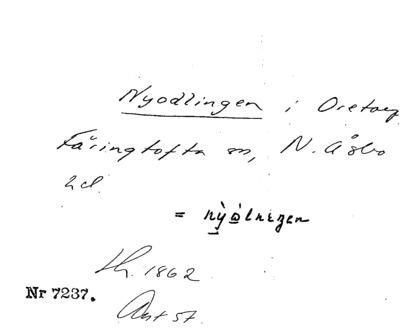 Nyodlingen i Oretorp
Färingtofta sn, N. Åsbo
hd
= nyọlningen
Lh. 1862
Nr 7237.
Ant 57